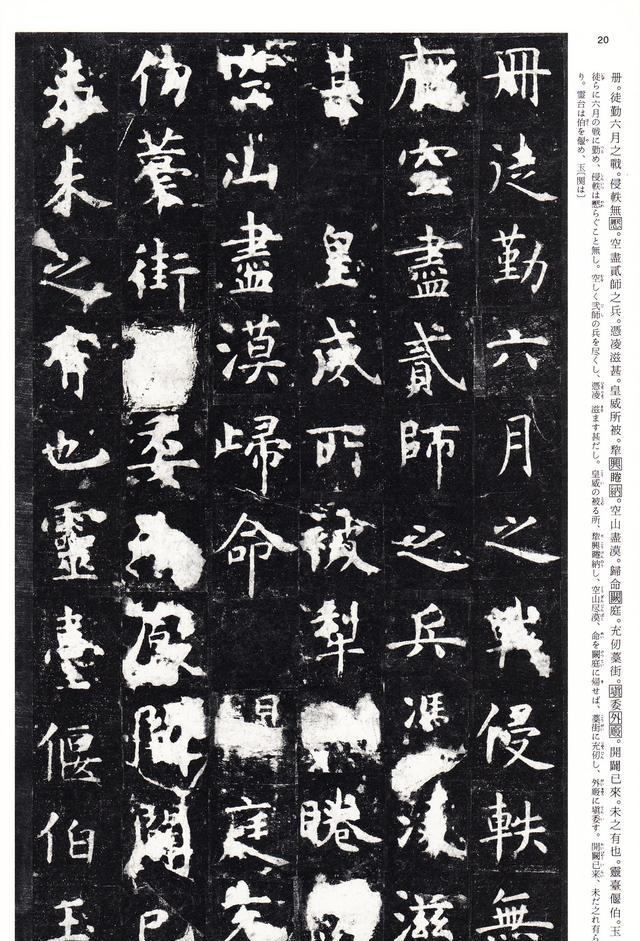 20
册。徒勤六月之戰。侵軼無厭。空盡貳師之兵。憑凌滋甚。皇威所被。犂興睠納。空山盡漠。歸命闕庭。充仞藁街。塡委外廏。開闢已來。未之有也。靈臺偃伯。玉
徒らに六月の戦に勤め、侵軼は懕らぐこと無し。空しく弐師の兵を尽くし、憑凌 滋ます甚だし。皇威の被る所、犂興睠納し、空山尽漠、命を闕庭に帰せば、藁街に充仞し、外廏に塡委す。開闢已来、未だ之れ有ら
り。霊台は伯を偃め、玉[関は]
册徒勤六月之戰侵軼無
厭空盡貳師之兵馮淩滋
甚皇威所被犁睠
空山盡漠歸命庭充
仞藁街委外廏開闢已
來未之有也靈臺偃伯玉